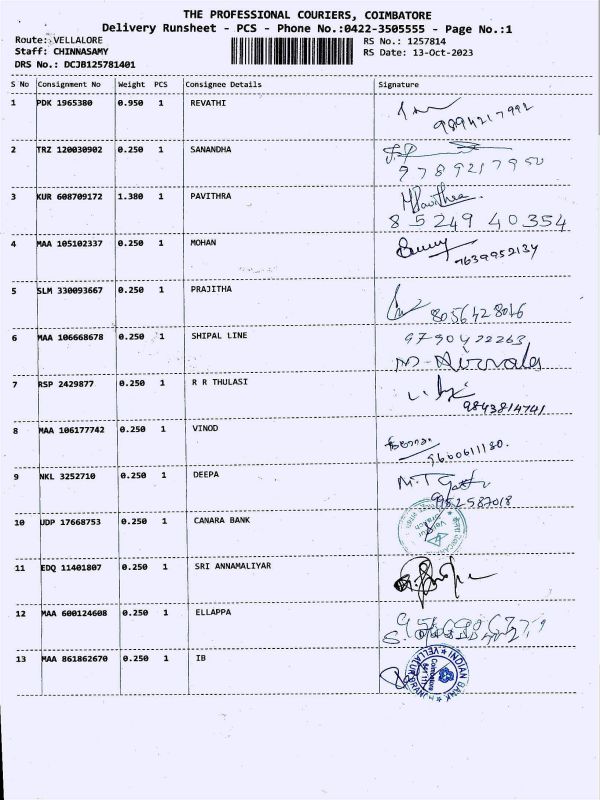 THE PROFESSIONAL COURIERS, COIMBATORE
Delivery Runsheet - PCS - Phone No.:0422-3505555 - Page No.:1
Route: VELLALORE RS No.: 1257814
Staff: CHINNASAMY RS Date: 13-Oct-2023
DRS No.: DCJB125781401
S No Consignment No Weight PCS Consignee Details Signature
1 PDK 1965380 0.950 1 REVATHI
9894217992
2 TRZ 120030902 0.250 1 SANANDHA
9789217950
3 KUR 608709172 1.380 1 PAVITHRA M Pavithra
85249 40354
4 MAA 105102337 0.250 1 MOHAN
7639952134
5 SLM 330093667 0.250 1 PRAJITHA
8056428046
6 MAA 106668678 0.250 1 SHIPAL LINE 9790422263
M. Nirmala
7 RSP 2429877 0.250 1 R R THULASI
9843814741
8 MAA 106177742 0.250 1 VINOD
9660611130.
9 NKL 3252710 0.250 1 DEEPA M.T
9952587018
10 UDP 17668753 0.250 1 CANARA BANK
11 EDQ 11401807 0.250 1 SRI ANNAMALIYAR
12 MAA 600124608 0.250 1 ELLAPPA
13 MAA 861862670 0.250 1 IB
INDIAN BANK
Coimbatore